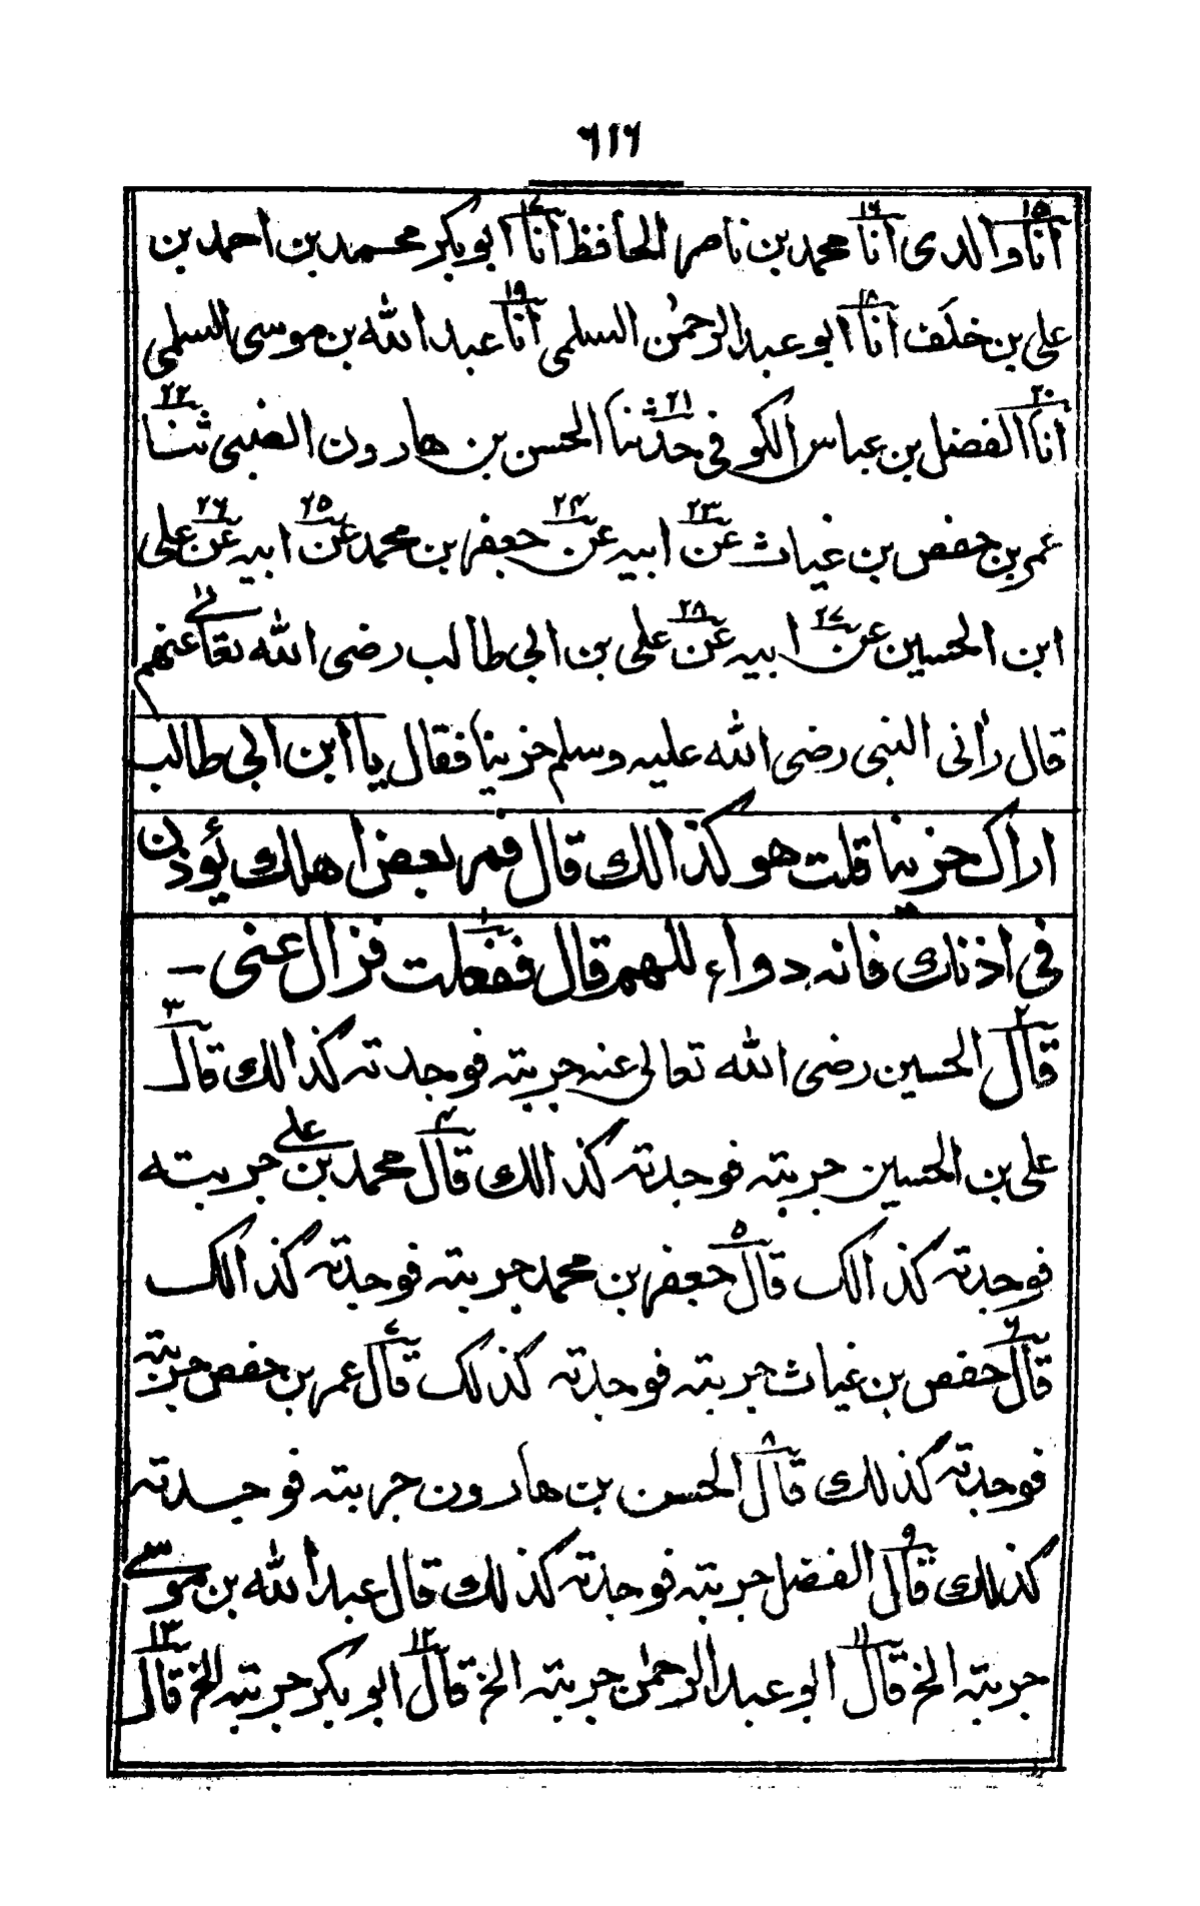 ٦١٦
انا والدی انا محمد بن ناصر الحافظ انا ابو بکر محمد بن احمد بن
علی بن خلف انا ابو عبد الرحمٰن السلمی انا عبد اللہ بن موسی السلمی
انا الفضل بن عباس الکوفی حدثنا الحسن بن هارون الضبی ثنا
عمر بن حفص بن غیاث عن ابیہ عن جعفر بن محمد عن ابیہ عن علی
ابن الحسین عن ابیہ عن علی بن ابی طالب رضی اللہ تعالےٰ عنهم
قال رأنی النبی رضی اللہ علیہ وسلم حزینا فقال یا ابن ابی طالب
اراک حزینا قلت هو کذالک قال فمر بعض اهلک یؤذن
فی اذنک فانہ دواء للهم قال ففعلت فزال عنی ۔
قال الحسین رضی اللہ تعالی عنہ جربتہ فوجدتہ کذالک قال
علی بن الحسین جربتہ فوجدتہ کذالک قال محمد بن علے جربتہ
فوجدتہ کذالک قال جعفر بن محمد جربتہ فوجدتہ کذالک
قال حفص بن غیاث جربتہ فوجدتہ کذلک قال عمر بن حفص جربتہ
فوجدتہ کذلک قال الحسن بن هارون جربتہ فوجدتہ
کذلک قال الفضل جربتہ فوجدتہ کذلک قال عبد اللہ بن موسے
جربتہ الخ قال ابو عبد الرحمٰن جربتہ الخ قال ابو بکر جربتہ الخ قال